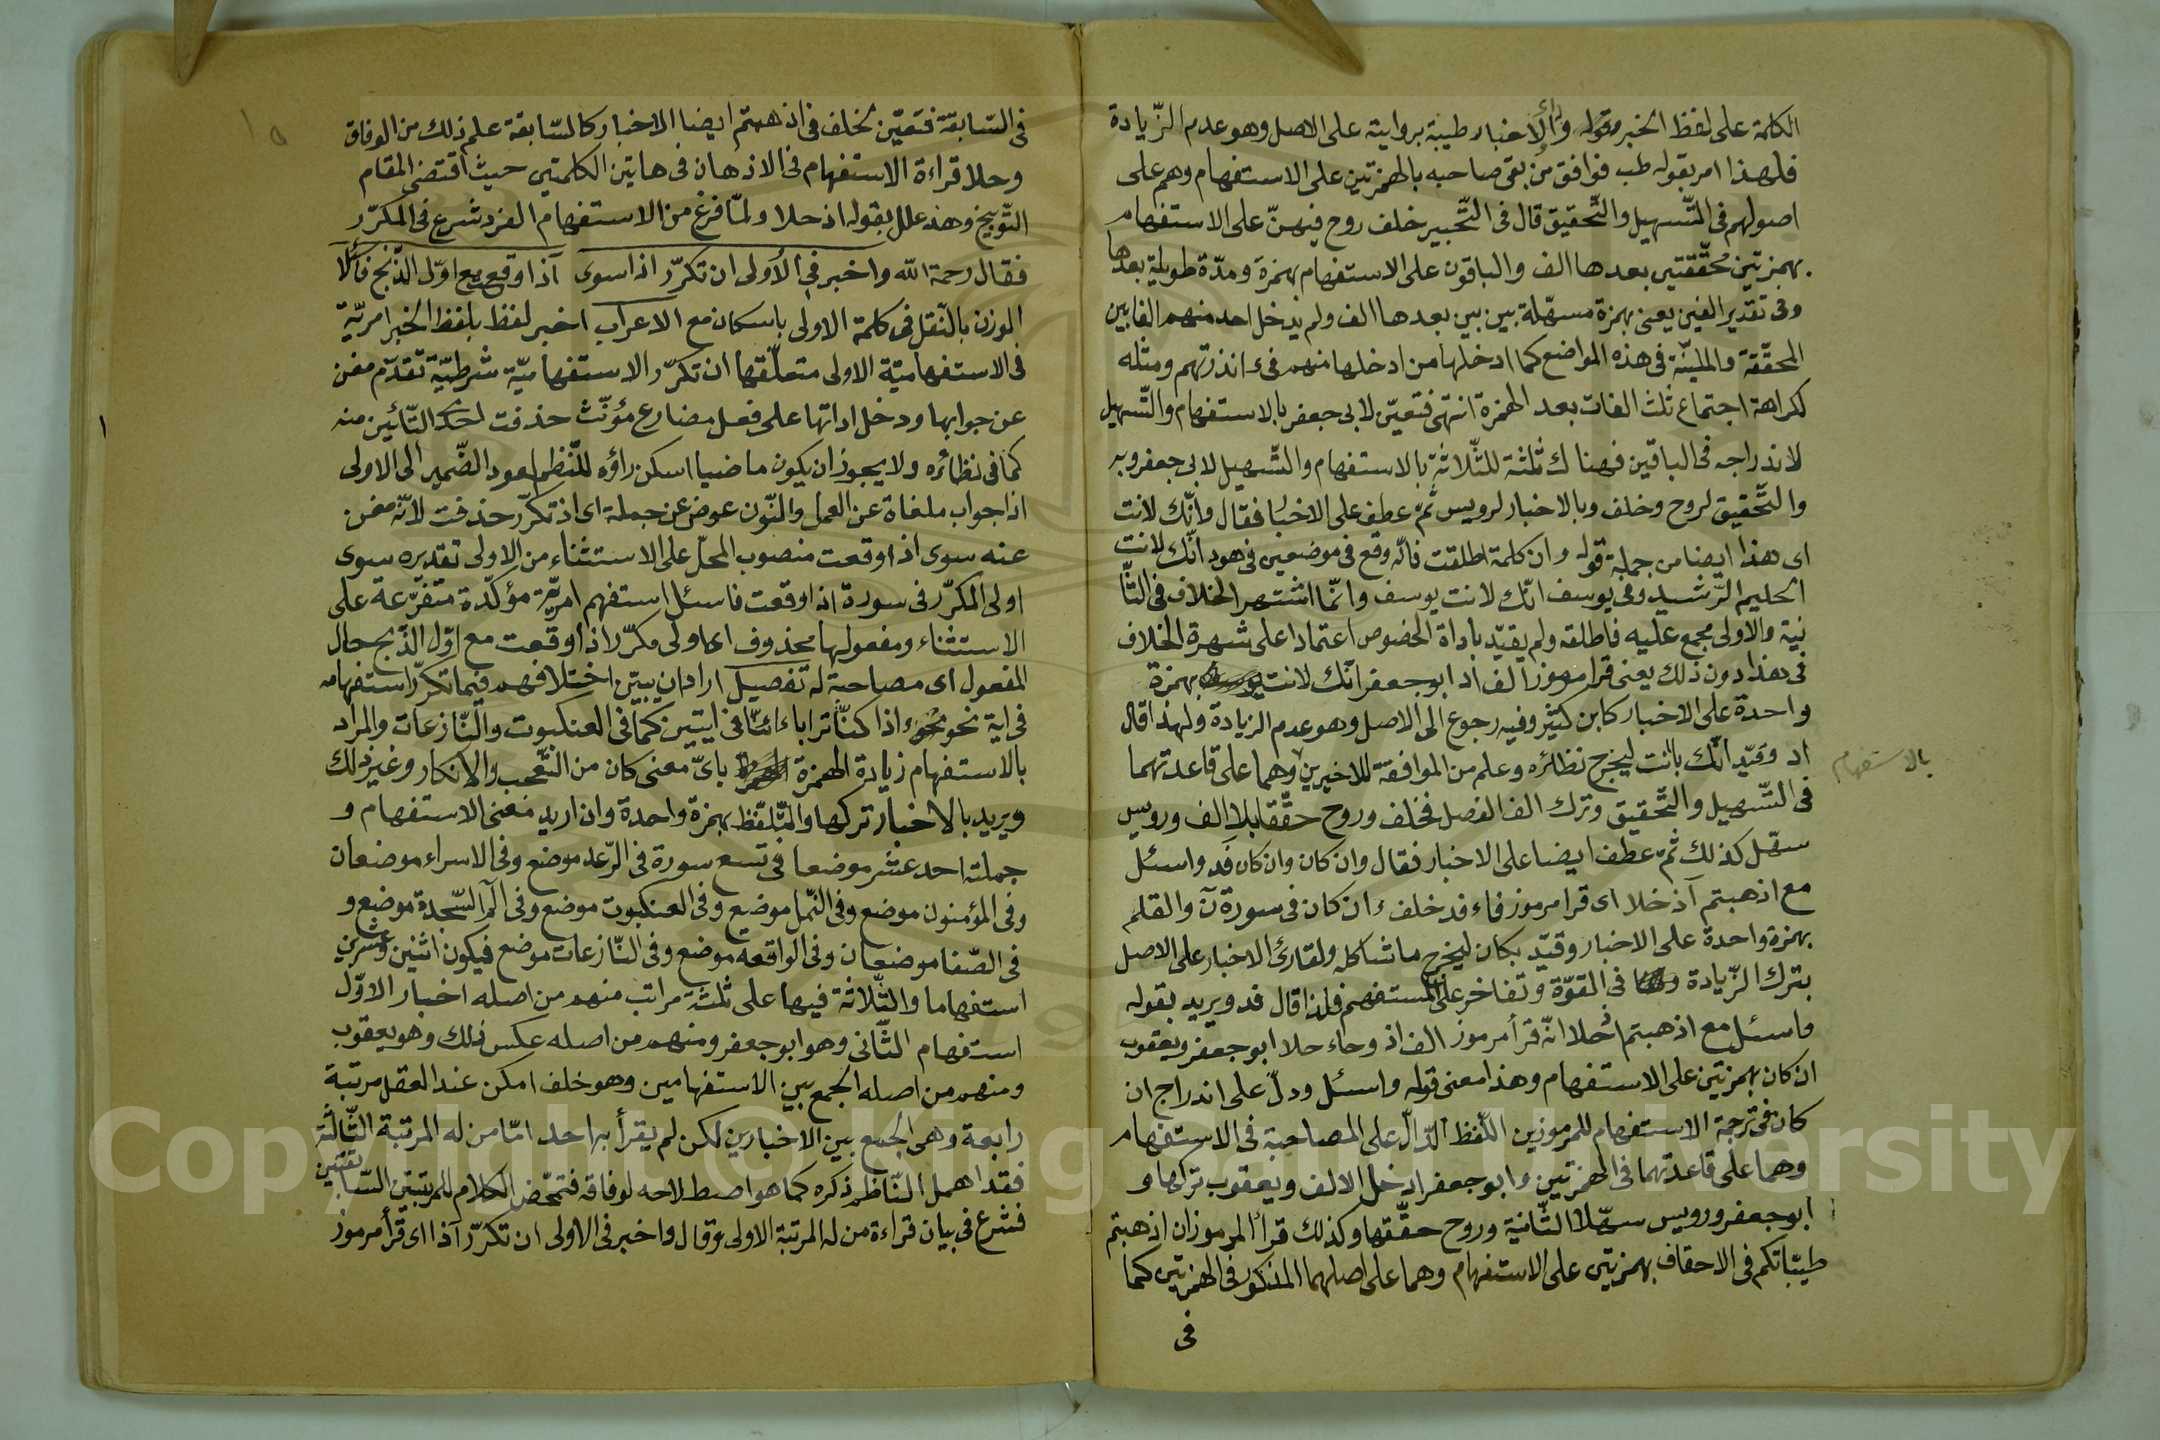 الكلمة على لفظ الخبر وقوله والاخبار طيبة بروايته على الاصل وهو عدم الزّيادة
فلهذا امر بقوله طب فوافق من بقى صاحبه بالهمزتين على الاستفهام وهم على
اصولهم فى التّسهيل والتّحقيق قال فى التّحبير خلف روح فيهنّ على الاستفهام
بهمزتين محقّقتين بعدها الف والباقون على الاستفهام بهمزة ومدّة طويلة بعدها
وفى تقدير الفين يعنى بهمزة مسهّلة بين بين بعدها الف ولم يدخل احد منهم الفا بين
المحقّقة والمليّنة فى هذه المواضع كما ادخلها من ادخلها منهم فى ءانذرتهم ومثله
لكراهة اجتماع ثلث الفات بعد الهمزة انتهى فتعيّن لابى جعفر بالاستفهام والتّسهيل
لاندراجه فى الباقين فهناك ثلثة للثّلاثة بالاستفهام والتّسهيل لابى جعفر وبه
والتّحقيق لروح وخلف وبالاخبار لرويس ثمّ عطف على الاخبار فقال وانّك لانت
اى هذا ايضا من جملة قوله وان كلمة اطلقت فانّه وقع فى موضعين فى هود انّك لانت
الحليم الرّشيد وفى يوسف انّك لانت يوسف وانّما اشتهر الخلاف فى الثّا
نية والاولى مجمع عليه فاطلقه ولم يقيّد باداة الخصوص اعتمادا على شهرة الخلاف
فى هذا دون ذلك يعنى قرا مرموز الف اد ابو جعفر انّك لانت بهمزة
واحدة على الاخبار كابن كثير وفيه رجوع الى الاصل وهو عدم الزيادة ولهذا قال
اد وقيّد انّك بانت ليخرج نظائره وعلم من الموافقة للاخيرين وهما على قاعدتهما
بالاستفهام
فى التّسهيل والتّحقيق وترك الف الفصل فخلف وروح حقّقا بلا الف ورويس
سهّل كذلك ثمّ عطف ايضا على الاخبار فقال وان كان وان كان فد واسئل
مع اذهبتم اذ حلا اى قرا مرموز فاء فد خلف ءان كان فى سورة ن والقلم
بهمزة واحدة على الاخبار وقيّد بكان ليخرج ما شاكله ولقارئ الاخبار على الاصل
بترك الزّيادة فى القوّة وتفاخر على المستفهم فلذا قال فد ويريد بقوله
واسئل مع اذهبتم اذ حلا انّه قرأ مرموز الف اذ وحاء حلا ابو جعفر ويعقوب
ان كان بهمزتين على الاستفهام وهذا معنى قوله واسئل ودلّ على اندراج ان
كان فى ترجمة الاستفهام للمرموزين اللّفظ الدّالّ على المصاحبة فى الاستفهام
وهما على قاعدتهما فى الهمزتين وابو جعفر ادخل الالف ويعقوب تركها و
ابو جعفر ورويس سهّلا الثّانية وروح حقّقها وكذلك قرا المرموزان اذهبتم
طيّباتكم فى الاحقاف بهمزتين على الاستفهام وهما على اصلهما المذكور فى الهمزتين كما
فى
فى السّابقة فتعيّن لخلف فى اذهبتم ايضا الاخبار كالسّابقة علم ذلك من الوفاق
وحلا قراءة الاستفهام فى الاذهان فى هاتين الكلمتين حيث اقتضى المقام
التّوبيخ وهذ علل بقوله اذ حلا ولمّا فرغ من الاستفهام الفرد شرع فى المكرّر
فقال رحمة الله واخبر فى الأولى ان تكرّر اذا سوى اذا وقع مع اوّل الذّبح فاسئلا
الوزن بالنّقل فى كلمة الاولى باسكان مع الاعراب اخبر لفظ بلفظ الخبر امريّة
فى الاستفهاميّة الاولى متعلّقها ان تكرّر الاستفهاميّة شرطيّة تقدّم مغن
عن جوابها ودخل اداتها على فعل مضارع مؤنّث حذفت احد التّائين منه
كما فى نظائره ولا يجوز ان يكون ماضيا اسكن راؤه للنّظم لعود الضّمير الى الاولى
اذا جواب ملغاة عن العمل والنّون عوض عن جملة اى اذ تكرّر حذفت لانّه مغن
عنه سوى اذا وقعت منصوب المحلّ على الاستثناء من الاولى تقديره سوى
اولى المكرّر فى سورة اذا وقعت فاسئل استفهم امريّة مؤكّدة متفرّعة على
الاستثناء ومفعولها محذوف اى اولى مكرّر اذا وقعت مع اوّل الذّبح حال
المفعول اى مصاحبة له تفصيل اراد ان يبيّن اختلافهم فيما تكرّر استفهامه
فى اية نحو ءاذا كنّا ترابا ءائنّا فى ايتين كما فى العنكبوت والنّازعات والمراد
بالاستفهام زيادة الهمزة باىّ معنى كان من التّعجّب والانكار وغير ذلك
ويريد بالاخبار تركها والتّلفّظ بهمزة واحدة وان اريد معنى الاستفهام و
جملته احد عشر موضعا فى تسع سورة فى الرّعد موضع وفى الاسراء موضعان
وفى المؤمنون موضع وفى النّمل موضع وفى العنكبوت موضع وفى الم السّجدة موضع و
فى الصّفا موضعان وفى الواقعه موضع وفى النّازعات موضع فيكون اثنين وعشرين
استفهاما والثّلاثة فيها على ثلثة مراتب منهم من اصله اخبار الاوّل
استفهام الثّانى وهو ابو جعفر ومنهم من اصله عكس ذلك وهو يعقوب
ومنهم من اصله الجمع بين الاستفهامين وهو خلف امكن عند العقل مرتبة
رابعة وهى الجمع بين الاخبارين لكن لم يقرأ به احد امّا من له المرتبة الثّالثة
فقد اهمل النّاظم ذكره كما هو اصطلاحه لوفاقه فتمحّض الكلام للمرتبتين السّابقتين
فشرع فى بيان قراءة من له المرتبة الاولى وقال واخبر فى الاولى ان تكرّر اذا اى قرأ مرموز
Copyright © King Saud University